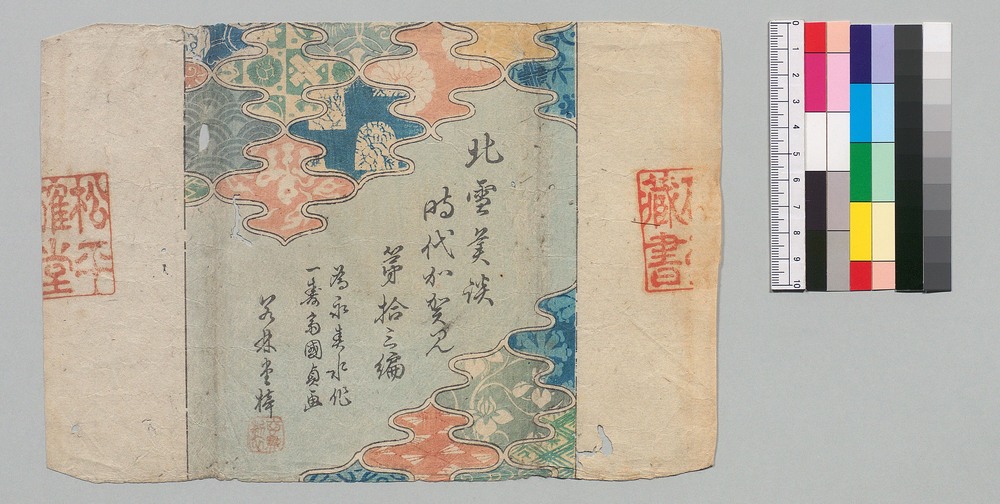 北雪美談
時代加賀見
第拾三編
為永春水作
一壽斎國貞画
若林堂梓
松平
羅堂
藏書
0 1 2 3 4 5 6 7 8 9 10